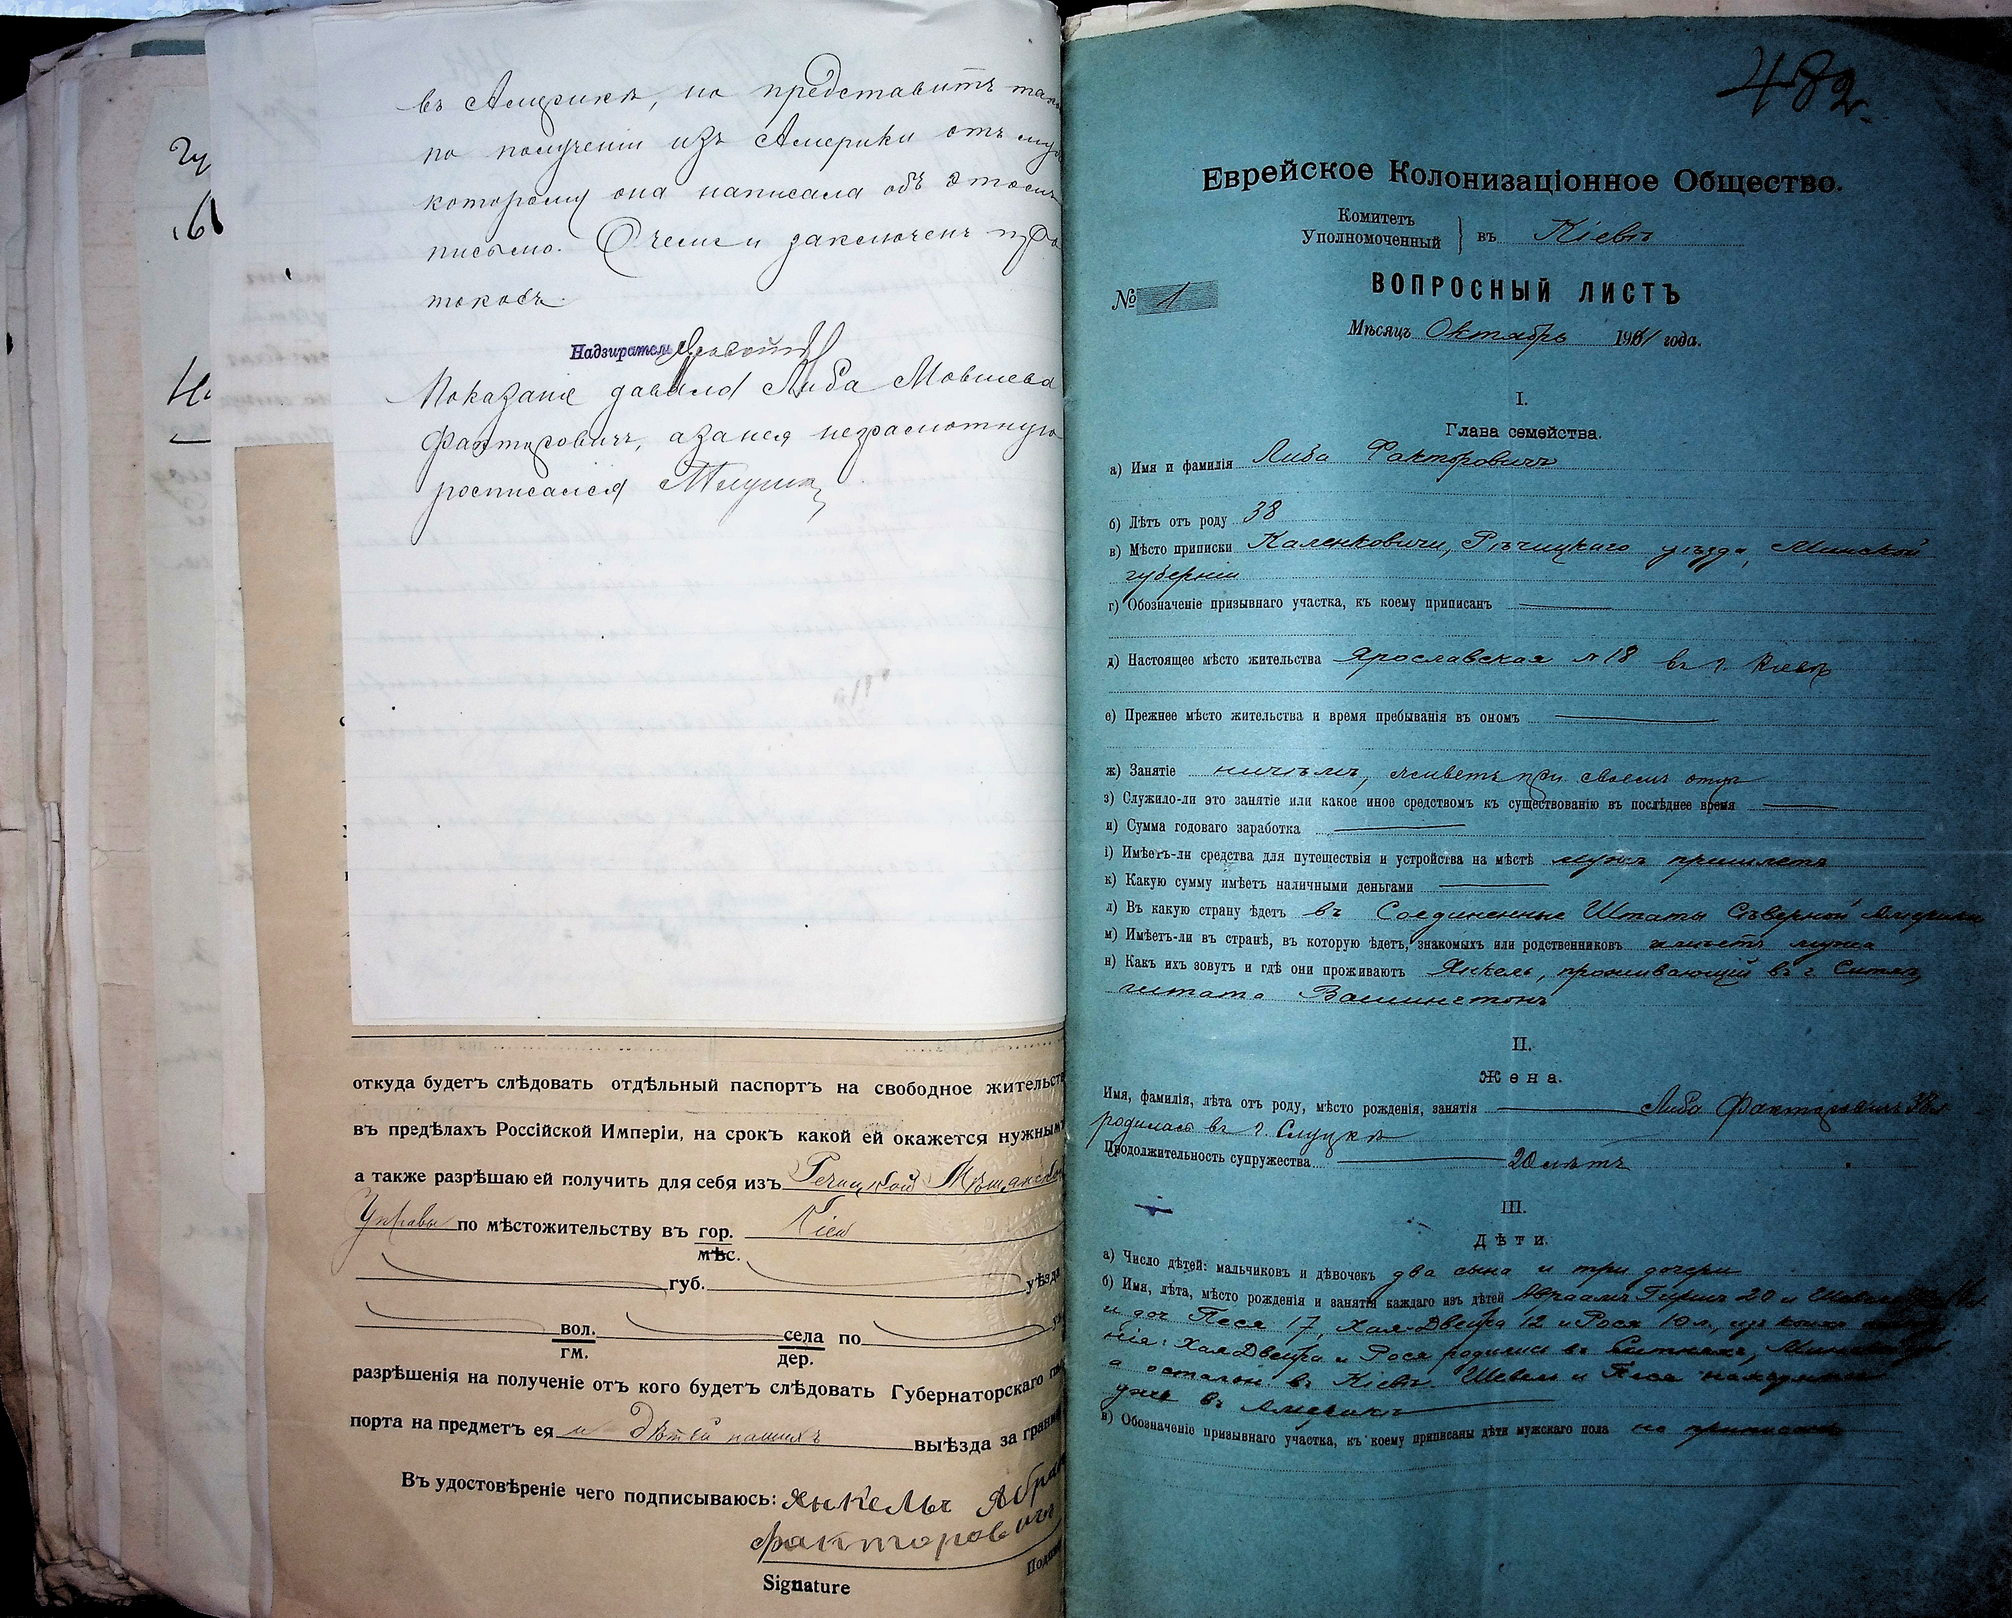 въ Америкѣ, но представитъ
по полученіи изъ Америки отъ
которому она написала объ этомъ
письмо. О чемъ и заключенъ про
токолъ.
Надзиратель
Показаніе давала Либа Мовшева
Факторовичъ, а за нея неграмотную
росписался
откуда будетъ слѣдовать отдѣльный паспортъ на свободное жительст
въ предѣлахъ Россійской Имперіи, на срокъ какой ей окажется нужнымъ
а также разрѣшаю ей получить для себя изъ Речицкой Мѣщанской
Управы по мѣстожительству въ гор. Кіев
мѣс.
губ. уѣзда
вол. села по
гм. дер.
разрѣшенія на полученіе отъ кого будетъ слѣдовать Губернаторскаго
порта на предметъ ея и дѣтей нашихъ выѣзда за грани
Въ удостовѣреніе чего подписываюсь: Янкель Абрам
Факторовичъ
Signature
482
Еврейское Колонизаціонное Общество.
Комитетъ
Уполномоченный } въ Кіевѣ
ВОПРОСНЫЙ ЛИСТЪ
№ 1
Мѣсяцъ Октябрь 1911 года.
I.
Глава семейства.
а) Имя и фамилія Либа Факторовичъ
б) Лѣтъ отъ роду 38
в) Мѣсто приписки Каленковичи, Рѣчицкаго уѣзда, Минской
губерніи
г) Обозначеніе призывнаго участка, къ коему приписанъ
д) Настоящее мѣсто жительства Ярославская №18 въ г. Кіевѣ
е) Прежнее мѣсто жительства и время пребыванія въ ономъ
ж) Занятіе ничѣмъ, живетъ при своемъ отцѣ
з) Служило-ли это занятіе или какое иное средствомъ къ существованію въ послѣднее время
и) Сумма годоваго заработка
і) Имѣетъ-ли средства для путешествія и устройства на мѣстѣ мужъ пришлетъ
к) Какую сумму имѣетъ наличными деньгами
л) Въ какую страну ѣдетъ въ Соединенные Штаты Сѣверной Америки
м) Имѣетъ-ли въ странѣ, въ которую ѣдетъ, знакомыхъ или родственниковъ имѣетъ мужа
н) Какъ ихъ зовутъ и гдѣ они проживаютъ Янкель, проживающій въ г. Ситлъ,
штата Вашингтонъ
II.
Жена.
Имя, фамилія, лѣта отъ роду, мѣсто рожденія, занятія Либа Факторовичъ 38 л
родилась въ г. Слуцкѣ
Продолжительность супружества 20 лѣтъ
III.
Дѣти.
а) Число дѣтей: мальчиковъ и дѣвочекъ два сына и три дочери
б) Имя, лѣта, мѣсто рожденія и занятія каждаго изъ дѣтей Авраамъ Гиршъ 20 и Шевель
и доч Песя 17, Хая-Двейра 12 и Рося 10 л., изъ коихъ
Хая Двейра и Рося родились въ
а остальн. въ Кіевѣ. Шевель и Песя находятся
уже въ Америкѣ
в) Обозначеніе призывнаго участка, къ коему приписаны дѣти мужскаго пола не приписаны